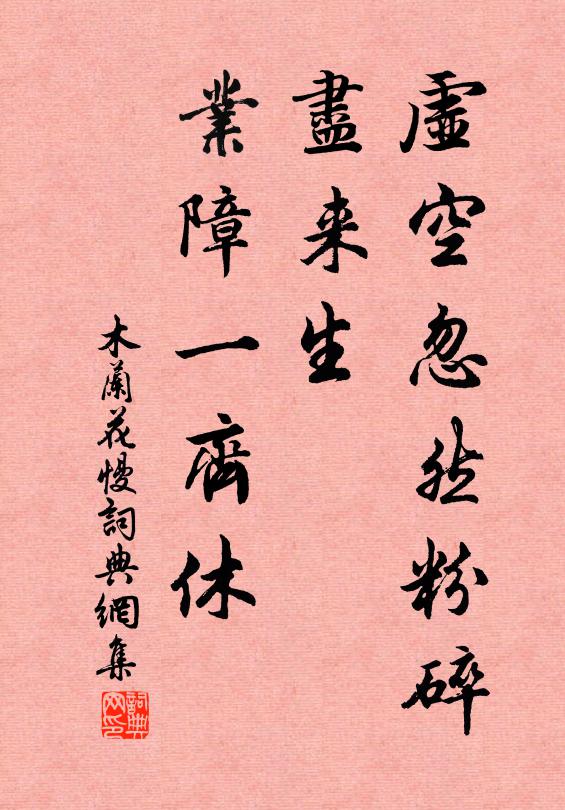 虛空忽然粉碎
盡来生
業障一齊休
木蘭花慢詞典網集
詞典网印